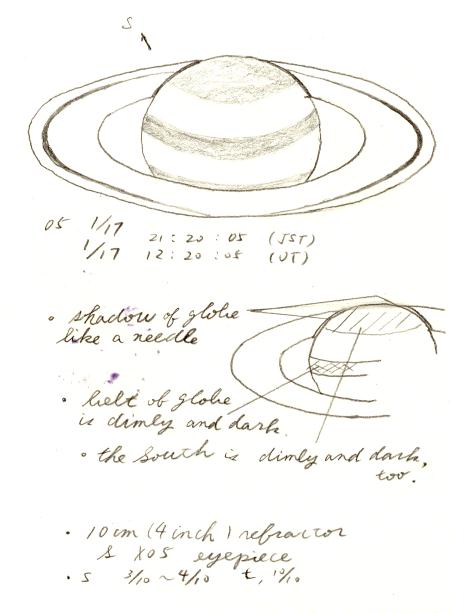 S
05 1/17 21:20:05 (JST)
1/17 12:20:05 (UT)
• shadow of globe
like a needle
• belt of globe
is dimly and dark.
• the South is dimly and dark,
too.
• 10cm (4 inch) refractor
& XO5 eyepiece
• S 3/10 ~ 4/10 t, 10/10